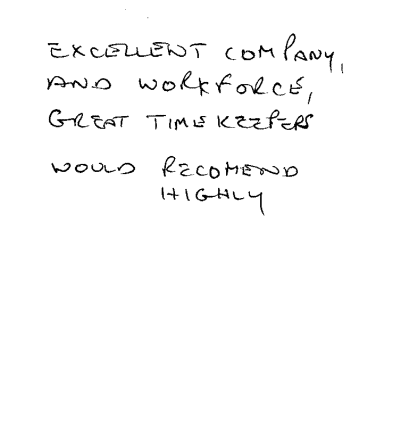 EXCELLENT COMPANY,
AND WORKFORCE,
GREAT TIME KEEPERS
WOULD RECOMEND
HIGHLY